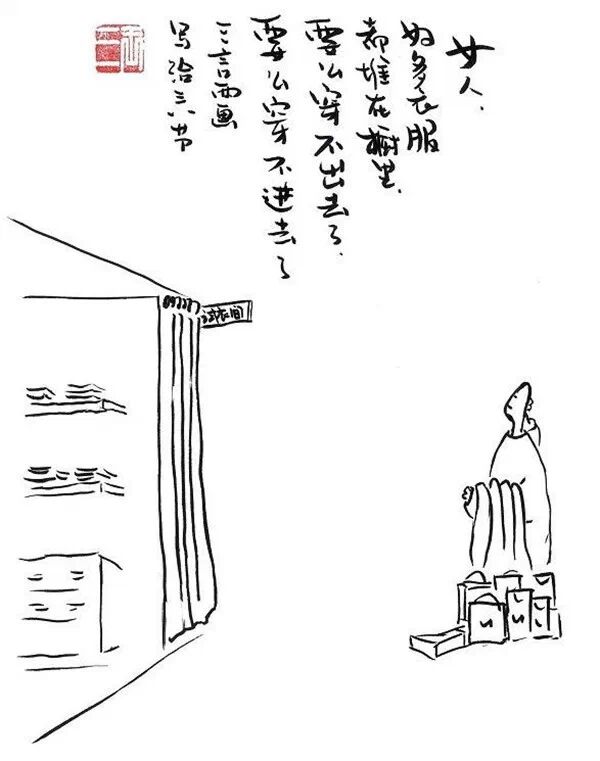 女人、
好多衣服
都堆在橱里、
要么穿不出去了、
要么穿不进去了
三言两画
写给三八节
试衣间